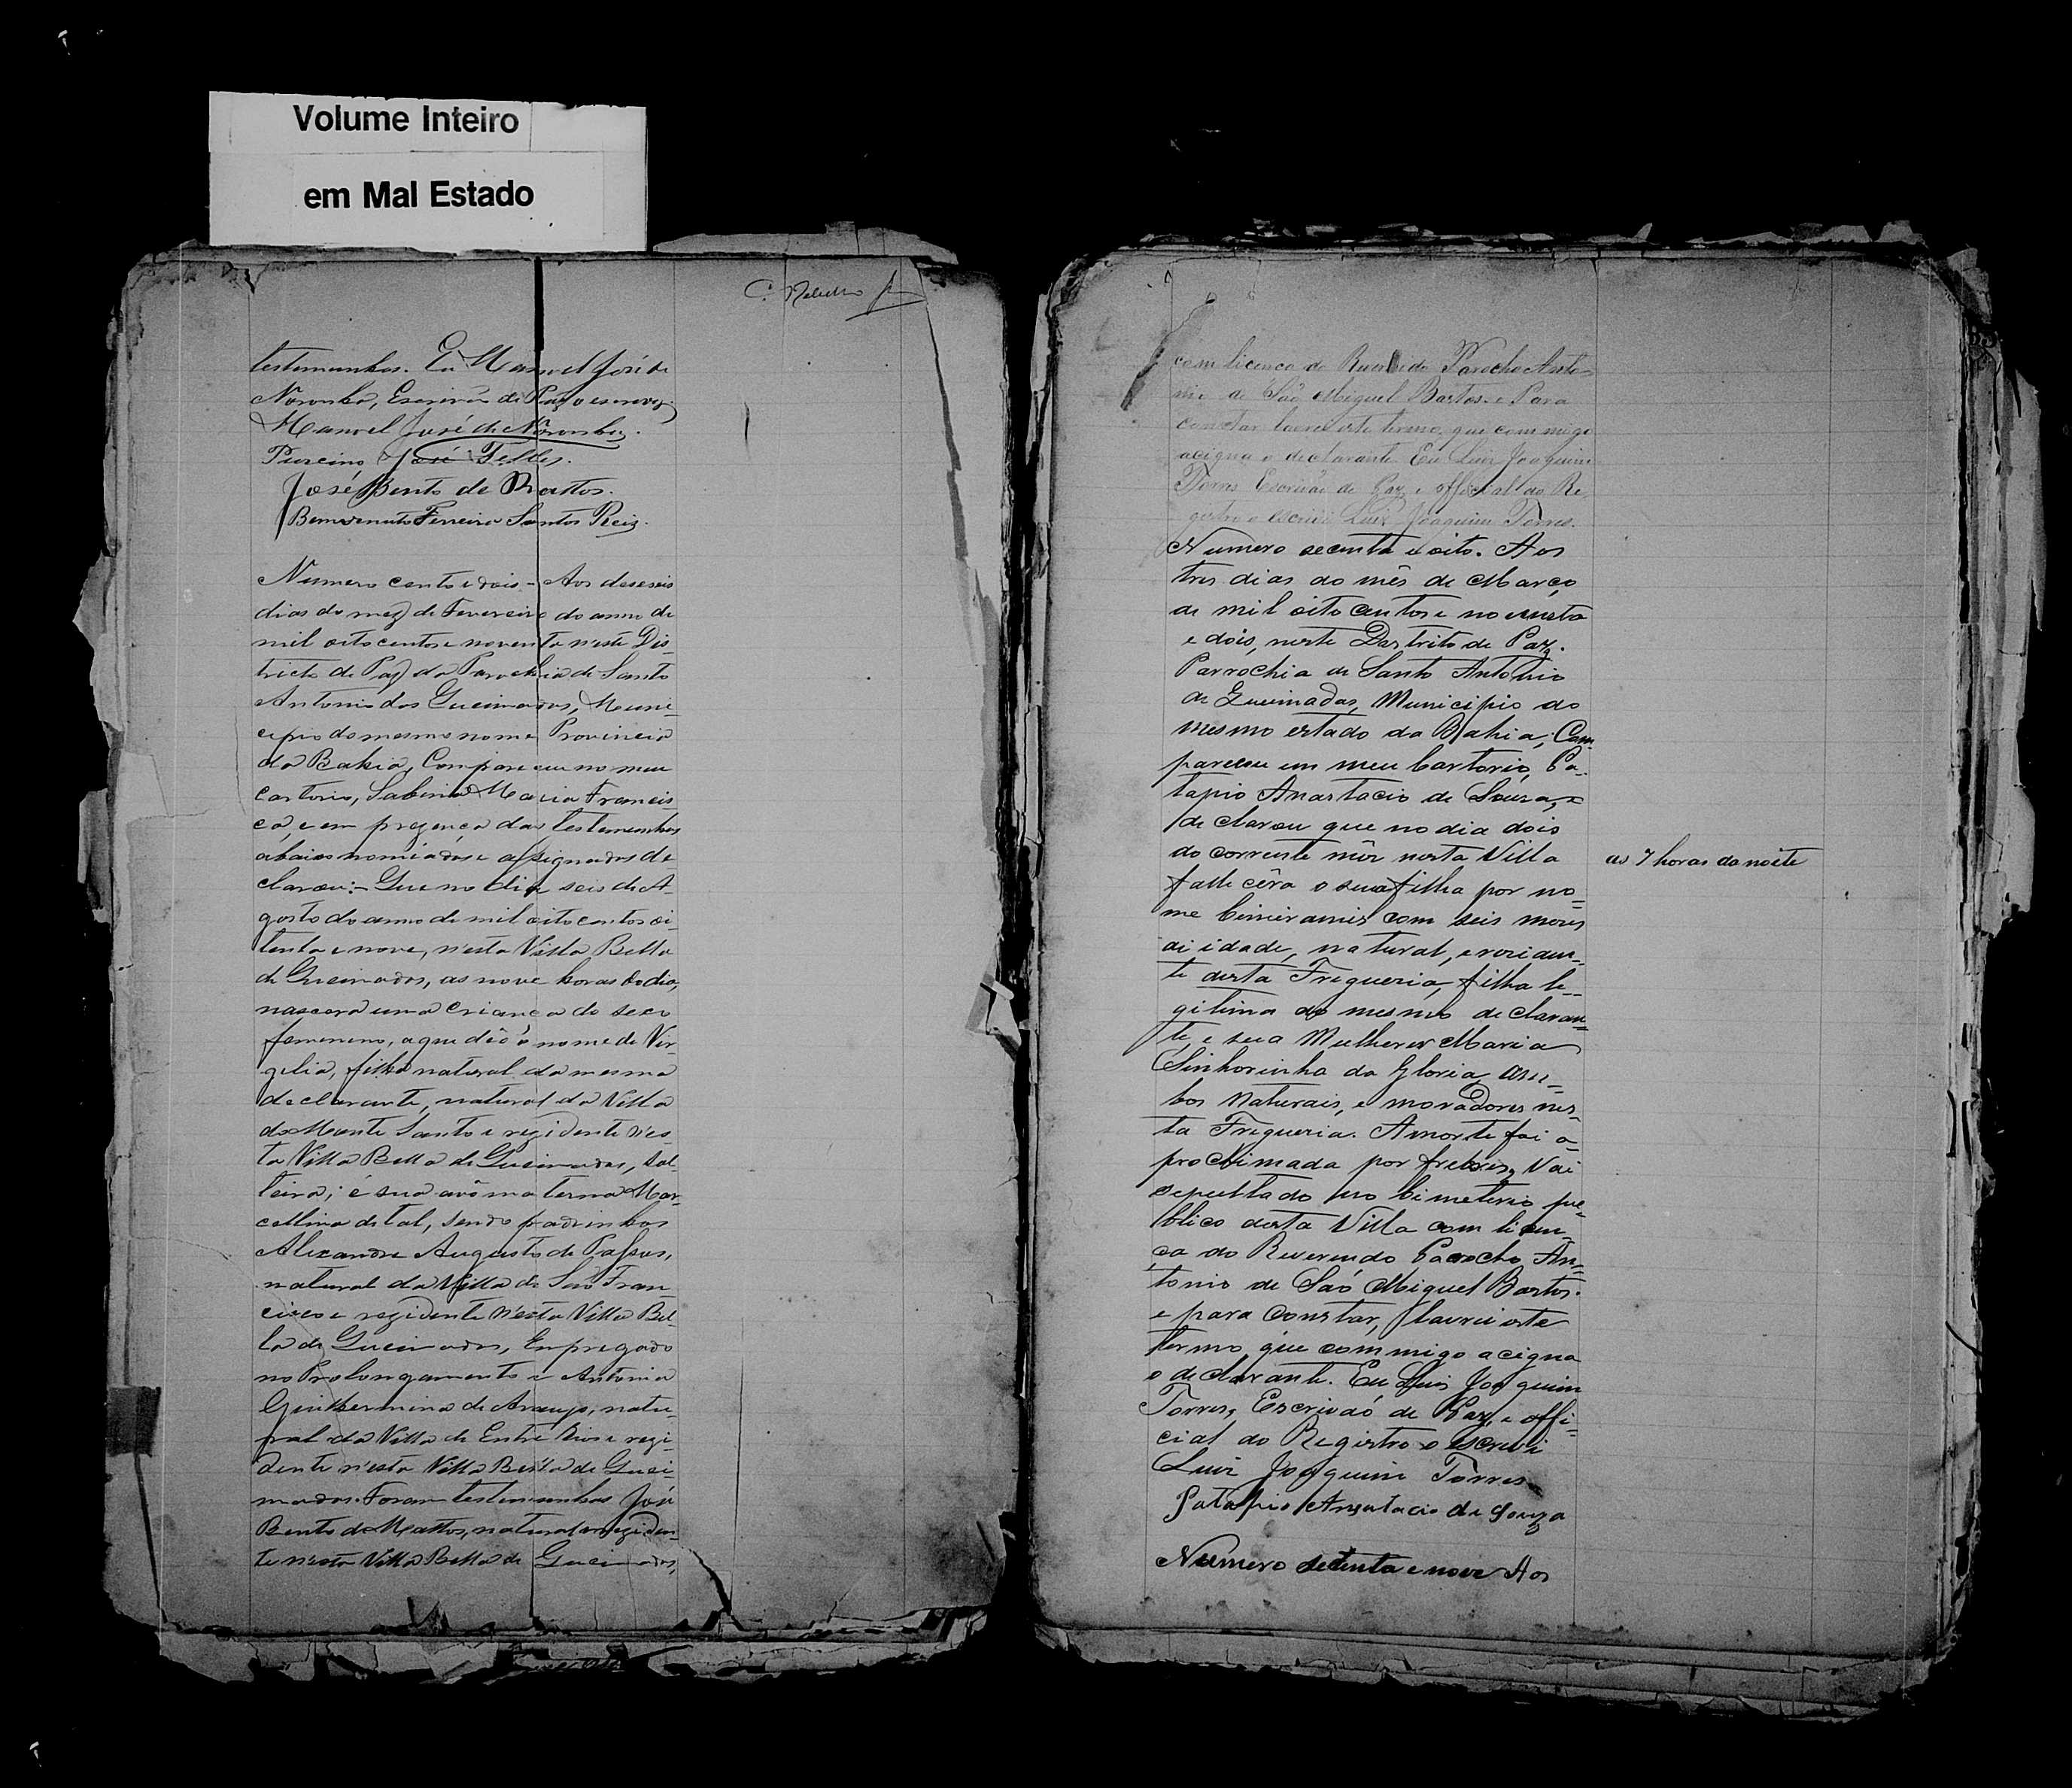 Volume Inteiro
em Mal Estado
testemunhas. Eu Manoel José de
Noronha, Escrivão de Paz o escrevy
Manoel José de Noronha.
José Telles.
José Bento de Mattos.
Bemvenuto Ferreira Santos Reis.
Numero cento e dois - Aos deseseis
dias do mez de Fevereiro do anno de
mil oito centos e noventa n'este Dis-
tricto de Paz da Parochia de Santo
Antonio das Queimadas, Muni-
cipio do mesmo nome Provincia
da Bahia, Compareceu no meu
Cartorio, Sabina Maria Francis-
ca, e em prezença das testemunhas
abaixo nomiadas e assignadas de
clarou:- Que no dia seis de A-
gosto do anno de mil oito centos oi-
tenta e nove, n'esta Villa Bella
de Queimadas, as nove horas do dia,
nascera uma criança do sexo
femenino, a que dêo o nome de Vir-
gilia, filha natural da mesma
declarante, natural da Villa
do Monte Santo e rezidente n'es-
ta Villa Bella de Queimadas, sol-
teira; é sua avô materna Mar-
cellina de tal, sendo padrinhos
Alexandre Augusto de Passos,
natural da Villa de São Fran-
cisco e rezidente n'esta Villa Bel-
la de Queimadas, Empregado
no Prolongamento e Antonia
Guilhermina de Araujo, natu-
ral da Villa de Entre Rios e rezi-
dente n'esta Villa Bella de Quei-
madas. Foram testemunhas José
Bento de Mattos, natural e reziden-
te n'esta Villa Bella de Queimadas,
com licença do Reverendo Parocho Anto-
nio de São Miguel Bastos. e Para
constar lavrei este termo, que commigo
acigna o declarante Eu Luiz Joaquim
Torres Escrivão de Paz, e official do Re-
gistro o escrivi Luiz Joaquim Torres.
Numero secenta e oito. Aos
tres dias do mês de Março,
de mil oito centos e noventa
e dois, neste Destrito de Paz.
Parrochia de Santo Antonio
de Queimadas, Municipio do
mesmo estado da Bahia; Com
pareceu em meu Cartorio, Pa-
tapio Anastacio de Souza, e
declarou que no dia dois
do corrente mês nesta Villa
fallecêra o sua filha por no-
me com seis mezes
di idade, natural, e rezidan-
te desta Fregueria, filha le-
gitima do mesmo declaran-
te, e sua Mulherer Maria
Sinhorinha da Gloria, am-
bos naturais, e moradores nes-
ta Fregueria. A morte foi a
prochimada por frebres, Vai
cepultado no Cimeterio pu-
blico desta Villa com licen-
ça do Reverendo Parocho, An-
tonio de Saó Miguel Bastos.
e para constar, lavrei este
termo, que commigo acigna
o declarante. Eu Luis Joaquim
Torres, Escrivaó de Paz, e offi-
cial do Registro o escrevi
Luiz Joaquim Torres
Patapio Anastacio de Souza
Numero setenta e nove Aos
as 7 horas da noite